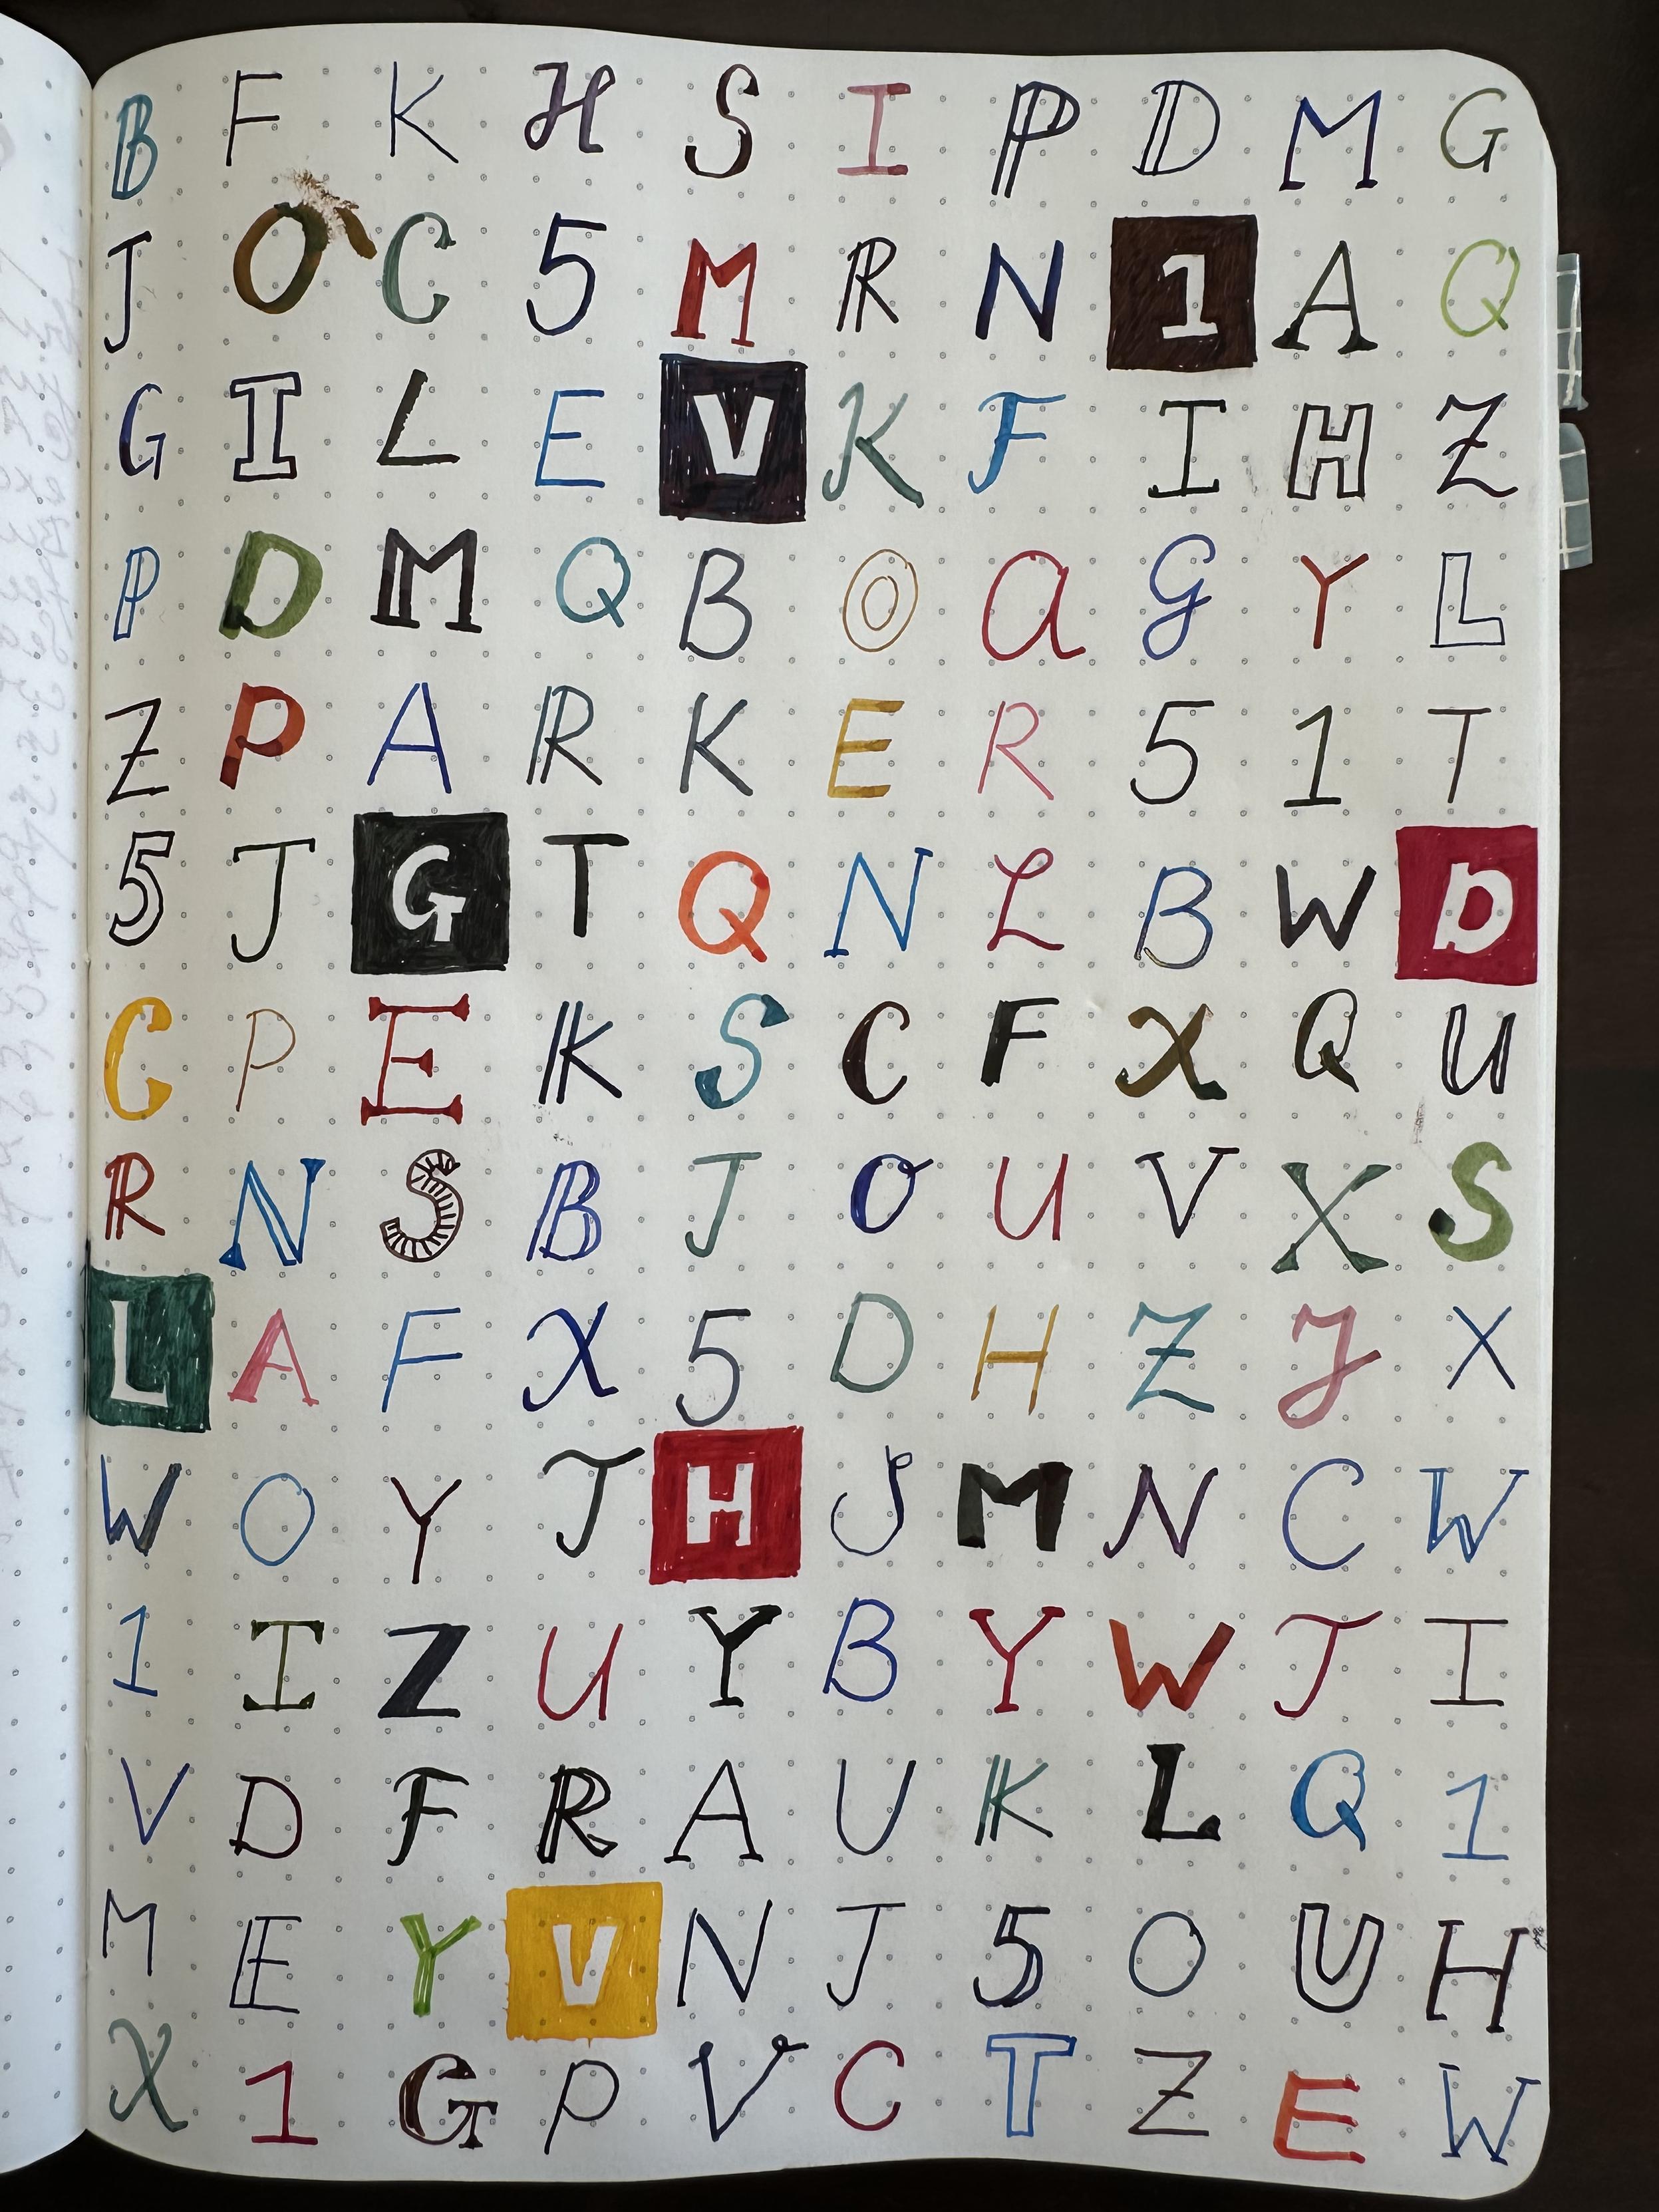 B F K H S I P D M G
J O C 5 M R N 1 A Q
G I L E V K F I H Z
P D M Q B O a G Y L
Z P A R K E R 5 1 T
5 J G T Q N L B W D
C P E K S C F X Q U
R N S B J O U V X S
L A F X 5 D H Z J X
W O Y T H S M N C W
1 I Z U Y B Y W T I
V D F R A U K L Q 1
M E Y V N J 5 O U H
X 1 G P V C T Z E W